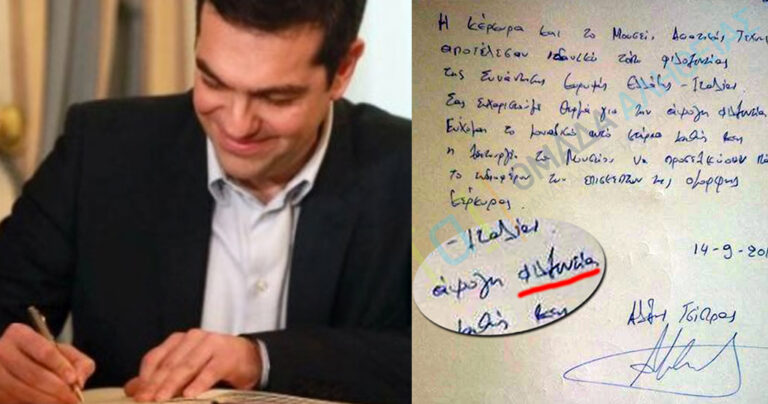 Η Κέρκυρα και το Μουσείο Ασιατικής Τέχνης
αποτέλεσαν ιδανικό τόπο φιλοξενίας
της Συνάντησης Κορυφής Ελλάδας - Ιταλίας
Σας ευχαριστούμε θερμά για την άψογη φιλοξενία
Εύχομαι το μοναδικό αυτό κτίριο καθώς και
η λειτουργία του Μουσείου να προσελκύσουν
το ενδιαφέρον των επισκεπτών της όμορφης
Κέρκυρας.
14-9-20
Αλέξης Τσίπρας
ΟΜΑΔΑ ΑΛΗΘΕΙΑΣ
- Ιταλίας
άψογη φιλοξενία
καθώς και